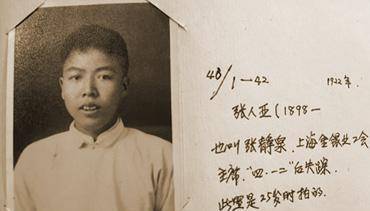 48/1-42 1922年.
张人亚(1898—
也叫 张静泉 上海金银业工会
主席."四.一二"后失踪.
此照是25岁时拍的.